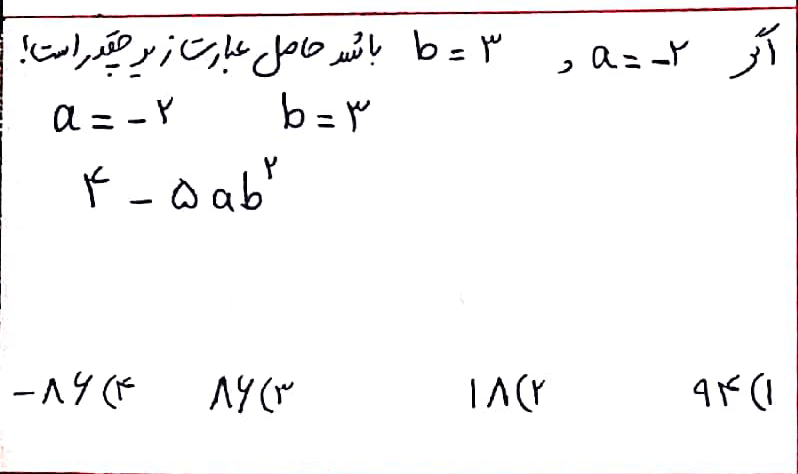 اگر a = -۲ و b = ۳ باشد حاصل عبارت زیر چقدر است!
a = -۲ b = ۳
۴ - ۵ab^۲
۱) ۹۴ ۲) ۱۸ ۳) ۸۶ ۴) -۸۶